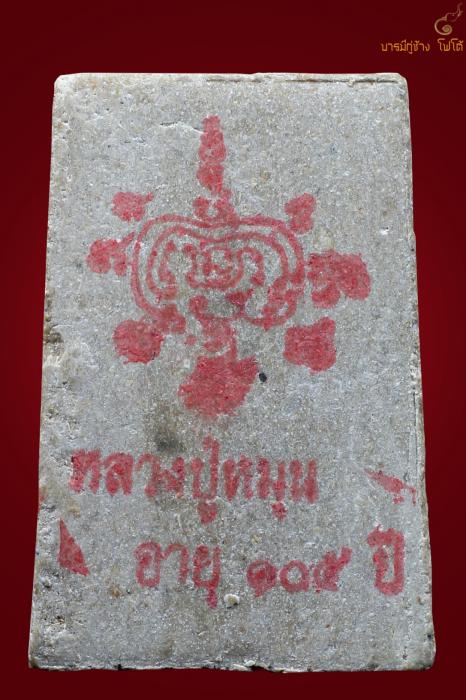 บารมีคู่ช้าง โฟโต้
หลวงปู่หมุน
อายุ ๑๐๕ ปี